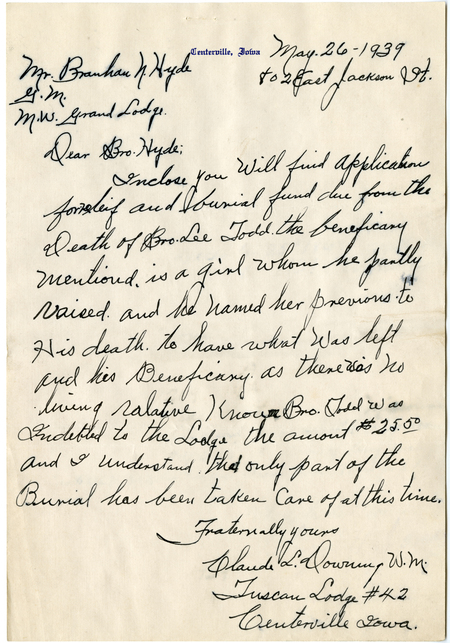 Centerville, Iowa
May. 26 - 1939
802 East Jackson St.
Mr. Branham N. Hyde
G. M.
M. W. Grand Lodge.
Dear Bro. Hyde;
Inclose you Will find Application
for releif and burial fund due from the
Death of Bro. Lee Todd. the beneficary
mentioned. is a girl whom he partly
raised. and he named her previous. to
His death. to have what Was left
and his Beneficary. as there was no
living ralative Known Bro. Todd was
Indebted to the Lodge the amount $25.50
and I understand. that only part of the
Burial has been taken Care of at this time.
Fraternally yours
Claude L. Downing W. M.
Tuscan Lodge #42
Centerville Iowa.